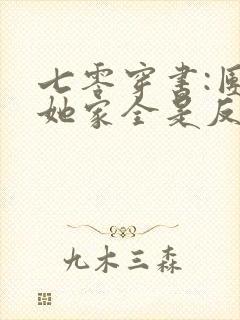 七零穿书:
她家全是反
九木三森